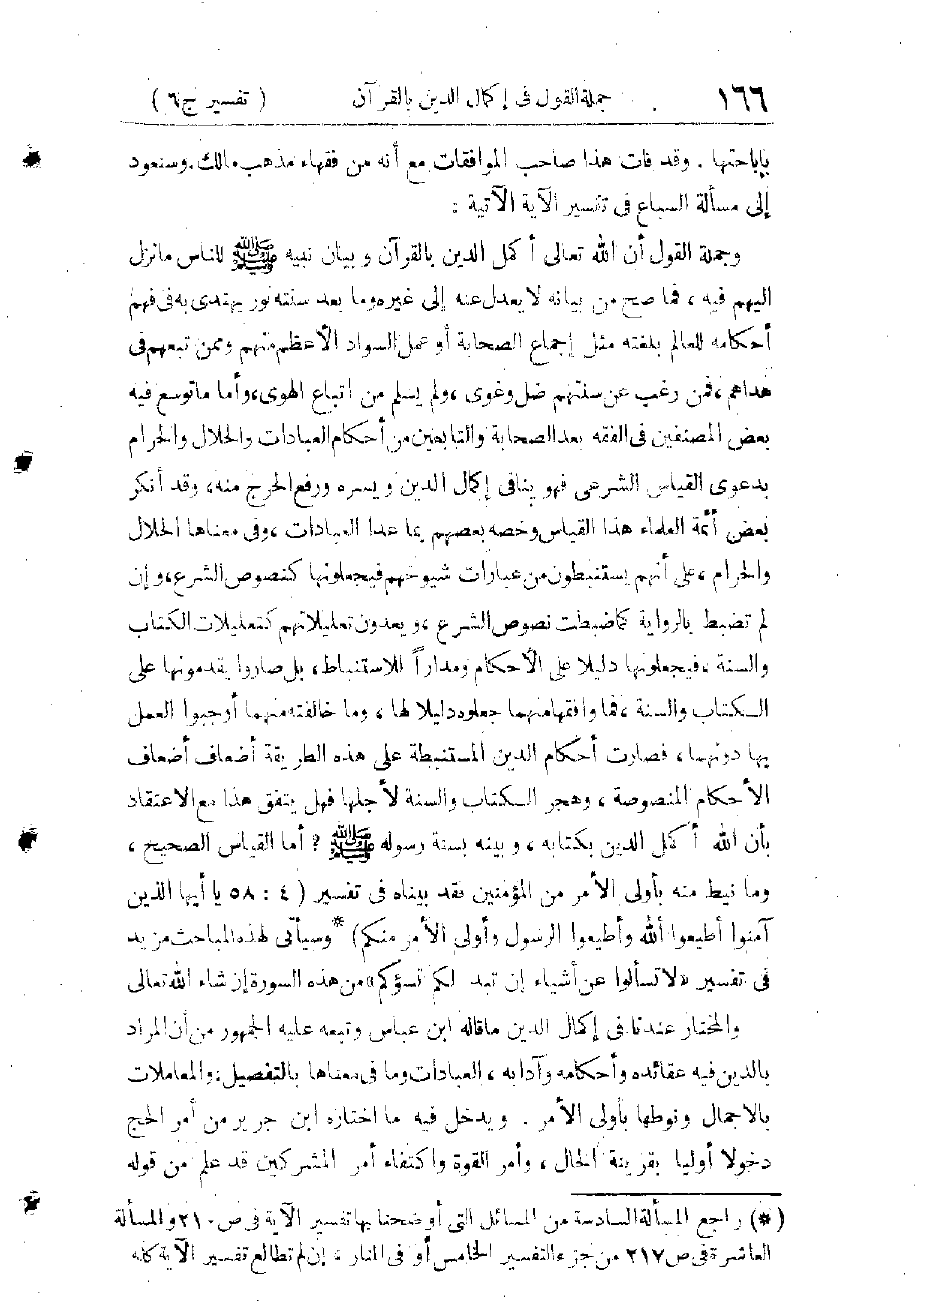 ١٦٦ جملة القول فى إكمال الدين بالقرآن ( تفسير ج ٦ )
بإباحتها . وقد فات هذا صاحب الموافقات مع أنه من فقهاء مذهب مالك . وسنعود
إلى مسألة السباع فى تفسير الآية الآتية :
وجملة القول أن الله تعالى أكمل الدين بالقرآن وبيان نبيه ﷺ للناس مانزل
اليهم فيه ، فما صح من بيانه لا يعدل عنه إلى غيره وما بعد سنته نور يهتدى به فى فهم
أحكامه للعالم بلغته مثل إجماع الصحابة أو عمل السواد الأعظم منهم وممن تبعهم فى
هداهم ، فمن رغب عن سنتهم ضل وغوى ، ولم يسلم من اتباع الهوى ، وأما ما توسع فيه
بعض المصنفين فى الفقه بعد الصحابة والتابعين من أحكام العبادات والحلال والحرام
بدعوى القياس الشرعى فهو ينافى إكمال الدين ويسره ورفع الحرج منه ، وقد أنكر
بعض أئمة العلماء هذا القياس وخصه بعضهم بما عدا العبادات ، وفى معناها الحلال
والحرام ، على أنهم يستنبطون من عبارات شيوخهم فيجعلونها كنصوص الشرع ، وإن
لم تضبط بالرواية كما ضبطت نصوص الشرع ، ويعدون تعليلاتهم كتعليلات الكتاب
والسنة ، فيجعلونها دليلا على الأحكام ومداراً للاستنباط ، بل صاروا يقدمونها على
الكتاب والسنة ، فما وافقها منهما جعلوه دليلا لها ، وما خالفته منهما أوجبوا العمل
بها دونهما ، فصارت أحكام الدين المستنبطة على هذه الطريقة أضعاف أضعاف
الأحكام المنصوصة ، وهجر الكتاب والسنة لأجلها فهل يتفق هذا مع الاعتقاد
بأن الله أكمل الدين بكتابه ، وبينه بسنة رسوله ﷺ ؟ أما القياس الصحيح ،
وما نيط منه بأولى الأمر من المؤمنين فقد بيناه فى تفسير ( ٤ : ٥٨ يا أيها الذين
آمنوا أطيعوا الله وأطيعوا الرسول وأولى الأمر منكم) * وسيأتى لهذه المباحث مزيد
فى تفسير « لا تسألوا عن أشياء إن تبد لكم تسؤكم » من هذه السورة إن شاء الله تعالى
والمختار عندنا فى إكمال الدين ما قاله ابن عباس وتبعه عليه الجمهور من أن المراد
بالدين فيه عقائده وأحكامه وآدابه ، العبادات وما فى معناها بالتفصيل : والمعاملات
بالاجمال ونوطها بأولى الأمر . ويدخل فيه ما اختاره ابن جرير من أمر الحج
دخولا أوليا بقرينة الحال ، وأمر القوة واكتفاء أمر المشركين قد علم من قوله
(*) راجع المسألة السادسة من المسائل التى أوضحنا بها تفسير الآية فى ص ٢١٠ والمسألة
العاشرة فى ص ٢١٧ من جزء التفسير الخامس أو فى المنار ، إن لم تطالع تفسير الآية كله